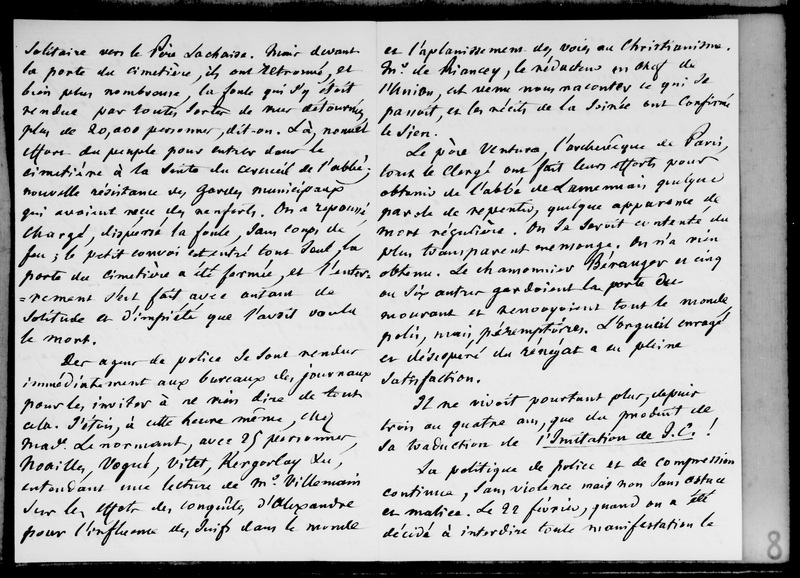 solitaire vers le Père Lachaise. Mais devant
la porte du cimetière, ils ont retrouvé, et
bien plus nombreuse, la foule qui s'y était
rendue par toutes sortes de rues détournées,
plus de 20,000 personnes, dit-on. Là, nouvel
effort du peuple pour entrer dans le
cimetière à la suite du cercueil de l'abbé;
nouvelle résistance des gardes municipaux
qui avaient reçu des renforts. On a repoussé,
chargé, dispersé la foule, sans coups de
feu; le petit convoi est entré tout seul, la
porte du cimetière a été fermée, et l'enter-
=rement s'est fait avec autant de
solitude et d'impiété que l'avait voulu
le mort.
Des agens de police se sont rendus
immédiatement aux bureaux des journaux
pour les inviter à ne rien dire de tout
cela. J'étais, à cette heure même, chez
Mad. Le normant, avec 25 personnes,
Noailles, Vogué, Vitet, Kergorlay &a,
entendant une lecture de Mr. Villemain
sur les effets des conquêtes d'Alexandre
pour l'influence des Juifs dans le monde
et l'aplanissement des voies au Christianisme.
Mr. de Riancey, le rédacteur en chef de
l'Union, est venu nous raconter ce qui se
passait, et les récits de la soirée ont confirmé
le sien.
Le père Ventura, l'archevêque de Paris,
tout le Clergé ont fait leurs efforts pour
obtenir de l'abbé de Lamennais quelque
parole de repentir, quelque apparence de
mort régulière. On se seroit contenté du
plus transparent mensonge. On n'a rien
obtenu. Le chansonnier Béranger et cinq
ou six autres gardoient la porte du
mourant et renvoyoient tout le monde,
polis, mais péremptoires. L'orgueil enragé
et désespéré du rénégat a eu pleine
satisfaction.
Il ne vivoit pourtant plus, depuis
trois ou quatre ans, que du produit de
sa traduction de l'Imitation de J.C. !
La politique de police et de compression
continue, sans violence mais non sans astuce
et malice. Le 22 février, quand on a été
décidé à interdire toute manifestation le
8